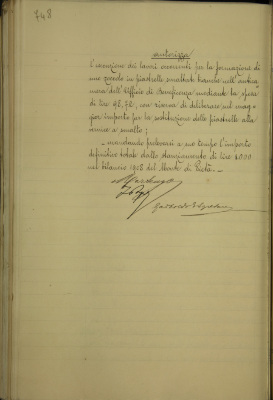 748
autorizza
l'esecuzione dei lavori occorrenti per la formazione di
uno zoccolo in piastrelle smaltate bianche nell'antica
mera dell'Ufficio di Beneficenza mediante la spesa
di lire 98,72, con riserva di deliberare sul mag-
gior importo per la sostituzione delle piastrelle alla
vernice a smalto;
— mandando prelevarsi a suo tempo l'importo
definitivo totale dallo stanziamento di lire 4000
nel bilancio 1908 del Monte di Pietà. —